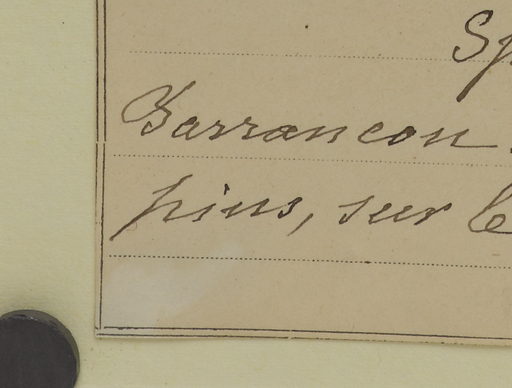 Sp
Barrancon
pins, sur